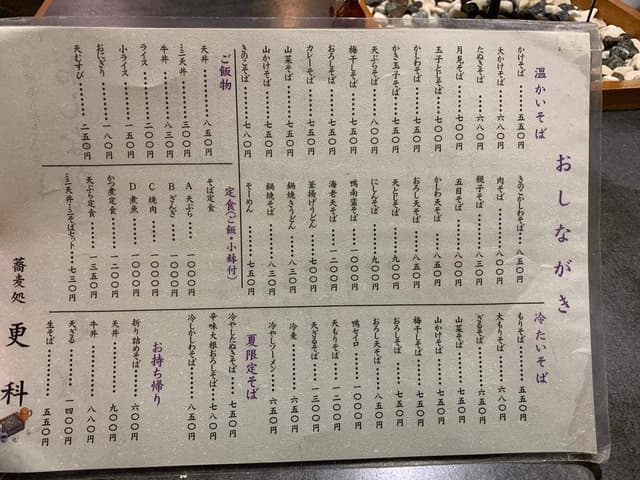 おしながき
温かいそば
かけそば………五五〇円
大かけそば……六八〇円
たぬきそば……六八〇円
月見そば………七〇〇円
玉子とじそば…七〇〇円
かしわそば……七五〇円
かき玉子そば…七五〇円
天ぷらそば……八〇〇円
梅干しそば……七五〇円
おろしそば……七五〇円
カレーそば……七五〇円
山菜そば………七五〇円
山かけそば……七五〇円
きのこそば……七八〇円
きのこかしわそば…八五〇円
肉そば…………八〇〇円
親子そば………七五〇円
五目そば………八五〇円
かしわ天そば…八〇〇円
おろし天そば…八五〇円
天とじそば……九〇〇円
にしんそば……九〇〇円
鴨南蛮そば…一〇〇〇円
海老天そば…一二〇〇円
釜揚げうどん…七〇〇円
鍋焼きうどん…八三〇円
鍋焼そば………八三〇円
そーめん………七五〇円
冷たいそば
もりそば………五五〇円
大もりそば……六八〇円
ざるそば………六五〇円
山菜そば………七五〇円
山かけそば……七五〇円
梅干しそば……七五〇円
おろしそば……七五〇円
おろし天そば…八五〇円
鴨セイロ……一〇〇〇円
天もりそば…一二〇〇円
天ざるそば…一三〇〇円
冷麦……………六五〇円
冷やしラーメン…六五〇円
夏限定そば
冷やしたぬきそば…七五〇円
辛味大根おろしそば…七八〇円
冷しかしわそば…八五〇円
お持ち帰り
折り詰めそば…六〇〇円
天丼……………九〇〇円
牛丼……………八八〇円
天ざる………一四〇〇円
生そば…………五五〇円
ご飯物
天丼……………八五〇円
ミニ天丼………三〇〇円
牛丼……………八三〇円
ライス…………二〇〇円
小ライス………一五〇円
おにぎり………一八〇円
天むすび………二五〇円
定食(ご飯・小鉢付)
そば定食
A 天ぷら……一〇〇〇円
B ざんぎ……一〇〇〇円
C 焼肉………一〇〇〇円
D 煮魚………一〇〇〇円
かつ煮定食…一二〇〇円
天ぷら定食…一三五〇円
ミニ天丼ミニそばセット…七三〇円
蕎麦処 更科